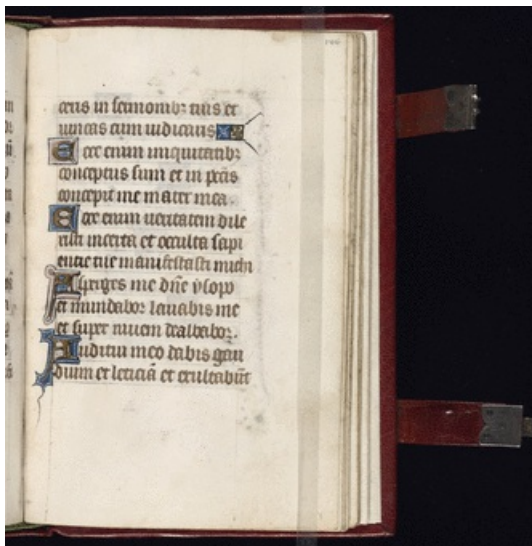 ceris in sermonibz tuis et
uincas cum iudicaris
Ecce enim iniquitatibz
conceptus sum et in pctis
concepit me mater mea.
Ecce enim ueritatem dile
xisti incerta et occulta sapi
entie tue manifestasti michi
Asperges me dne ysopo
et mundabor lauabis me
et super niuem dealbabor.
Auditui meo dabis gau
dium et leticia et exultabut